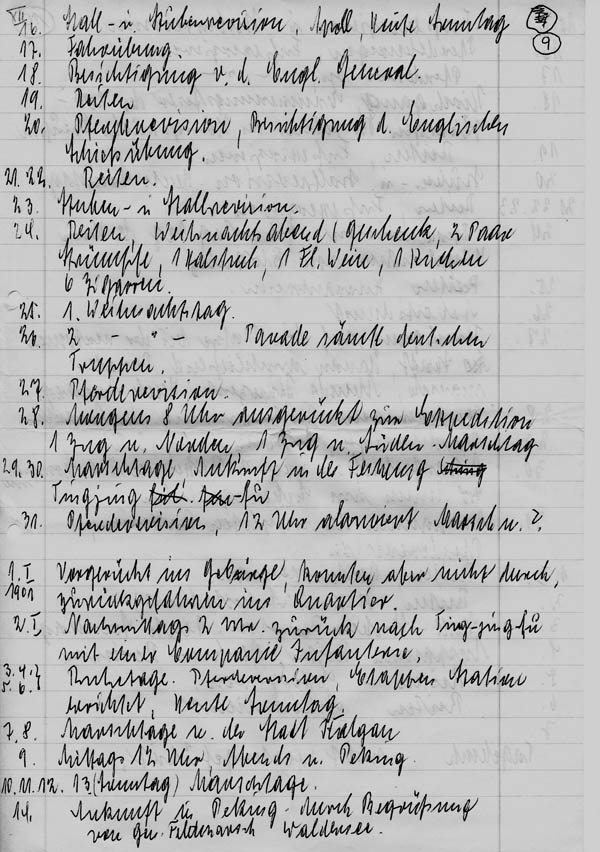 XII 16. Stall- u. Stubenrevision, Apell, heute Sonntag
9
17. Fahrübung.
18. Besichtigung v. d. Engl. General.
19. - Reiten
20. Pferderevision, Besichtigung d. Englischen
Schiessübung.
21.22. Reiten.
23. Stuben- u Stallrevision.
24. Reiten, Weihnachtsabend (Geschenk, 2 Paar
Strümpfe, 1 Halstuch, 1 Fl. Wein, 1 Kuchen
6 Zigarren.
25. 1. Weihnachtstag.
26. 2 - " - Parade sämtl. deutschen
Truppen.
27. Pferderevision.
28. Morgens 8 Uhr ausgerückt zur Expedition
1 Zug n. Norden, 1 Zug n. Süden. Marschtag
29.30. Marschtage, Ankunft in der Festung
Tingjing -fu
31. Pferderevision, 12 Uhr alarmiert Marsch n. ?.
1.I 1901 Vorgerückt ins Gebirge, konnten aber nicht durch,
zurückgefahren ins Quartier.
2.I. Nachmittags 2 Uhr. zurück nach Ting-jing-fu
mit einer Companie Infanterie.
3.4. 5.6. Ruhetage. Pferderevision, Etappen Station
errichtet, heute Sonntag.
7.8. Marschtage n. der Stadt Kalgan
9. Mittags 12 Uhr, Abends n. Peking.
10.11.12. 13 (Sonntag) Marschtage.
14. Ankunft in Peking - durch Begrüßung
von Gen. Feldmarsch Waldersee.